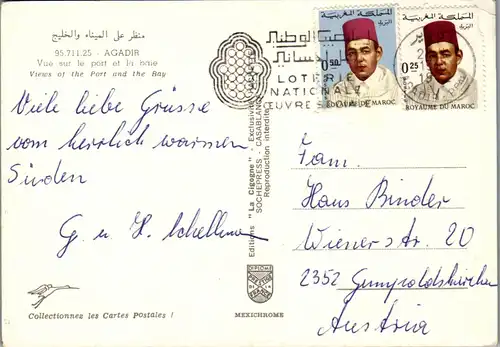 منظر على الميناء والخليج
95.711.25 - AGADIR
Vue sur le port et la baie
Views of the Port and the Bay
Viele liebe Grüsse
vom herrlich warmen
Süden
G. u H. Schellmann
Collectionnez les Cartes Postales !
Editions "La Cigogne" - Exclusivité
SOCHEPRESS - CASABLANCA
Reproduction interdite
DIPLOME
PRESTIGE
MEXICHROME
الوطني
LOTERIE
NATIONALE
ŒUVRES
المملكة المغربية
البريد
0,50
ROYAUME DU MAROC
المملكة المغربية
البريد
0,25
ROYAUME DU MAROC
Fam.
Hans Binder
Wienerstr. 20
2352 Gumpoldskirchen
Austria